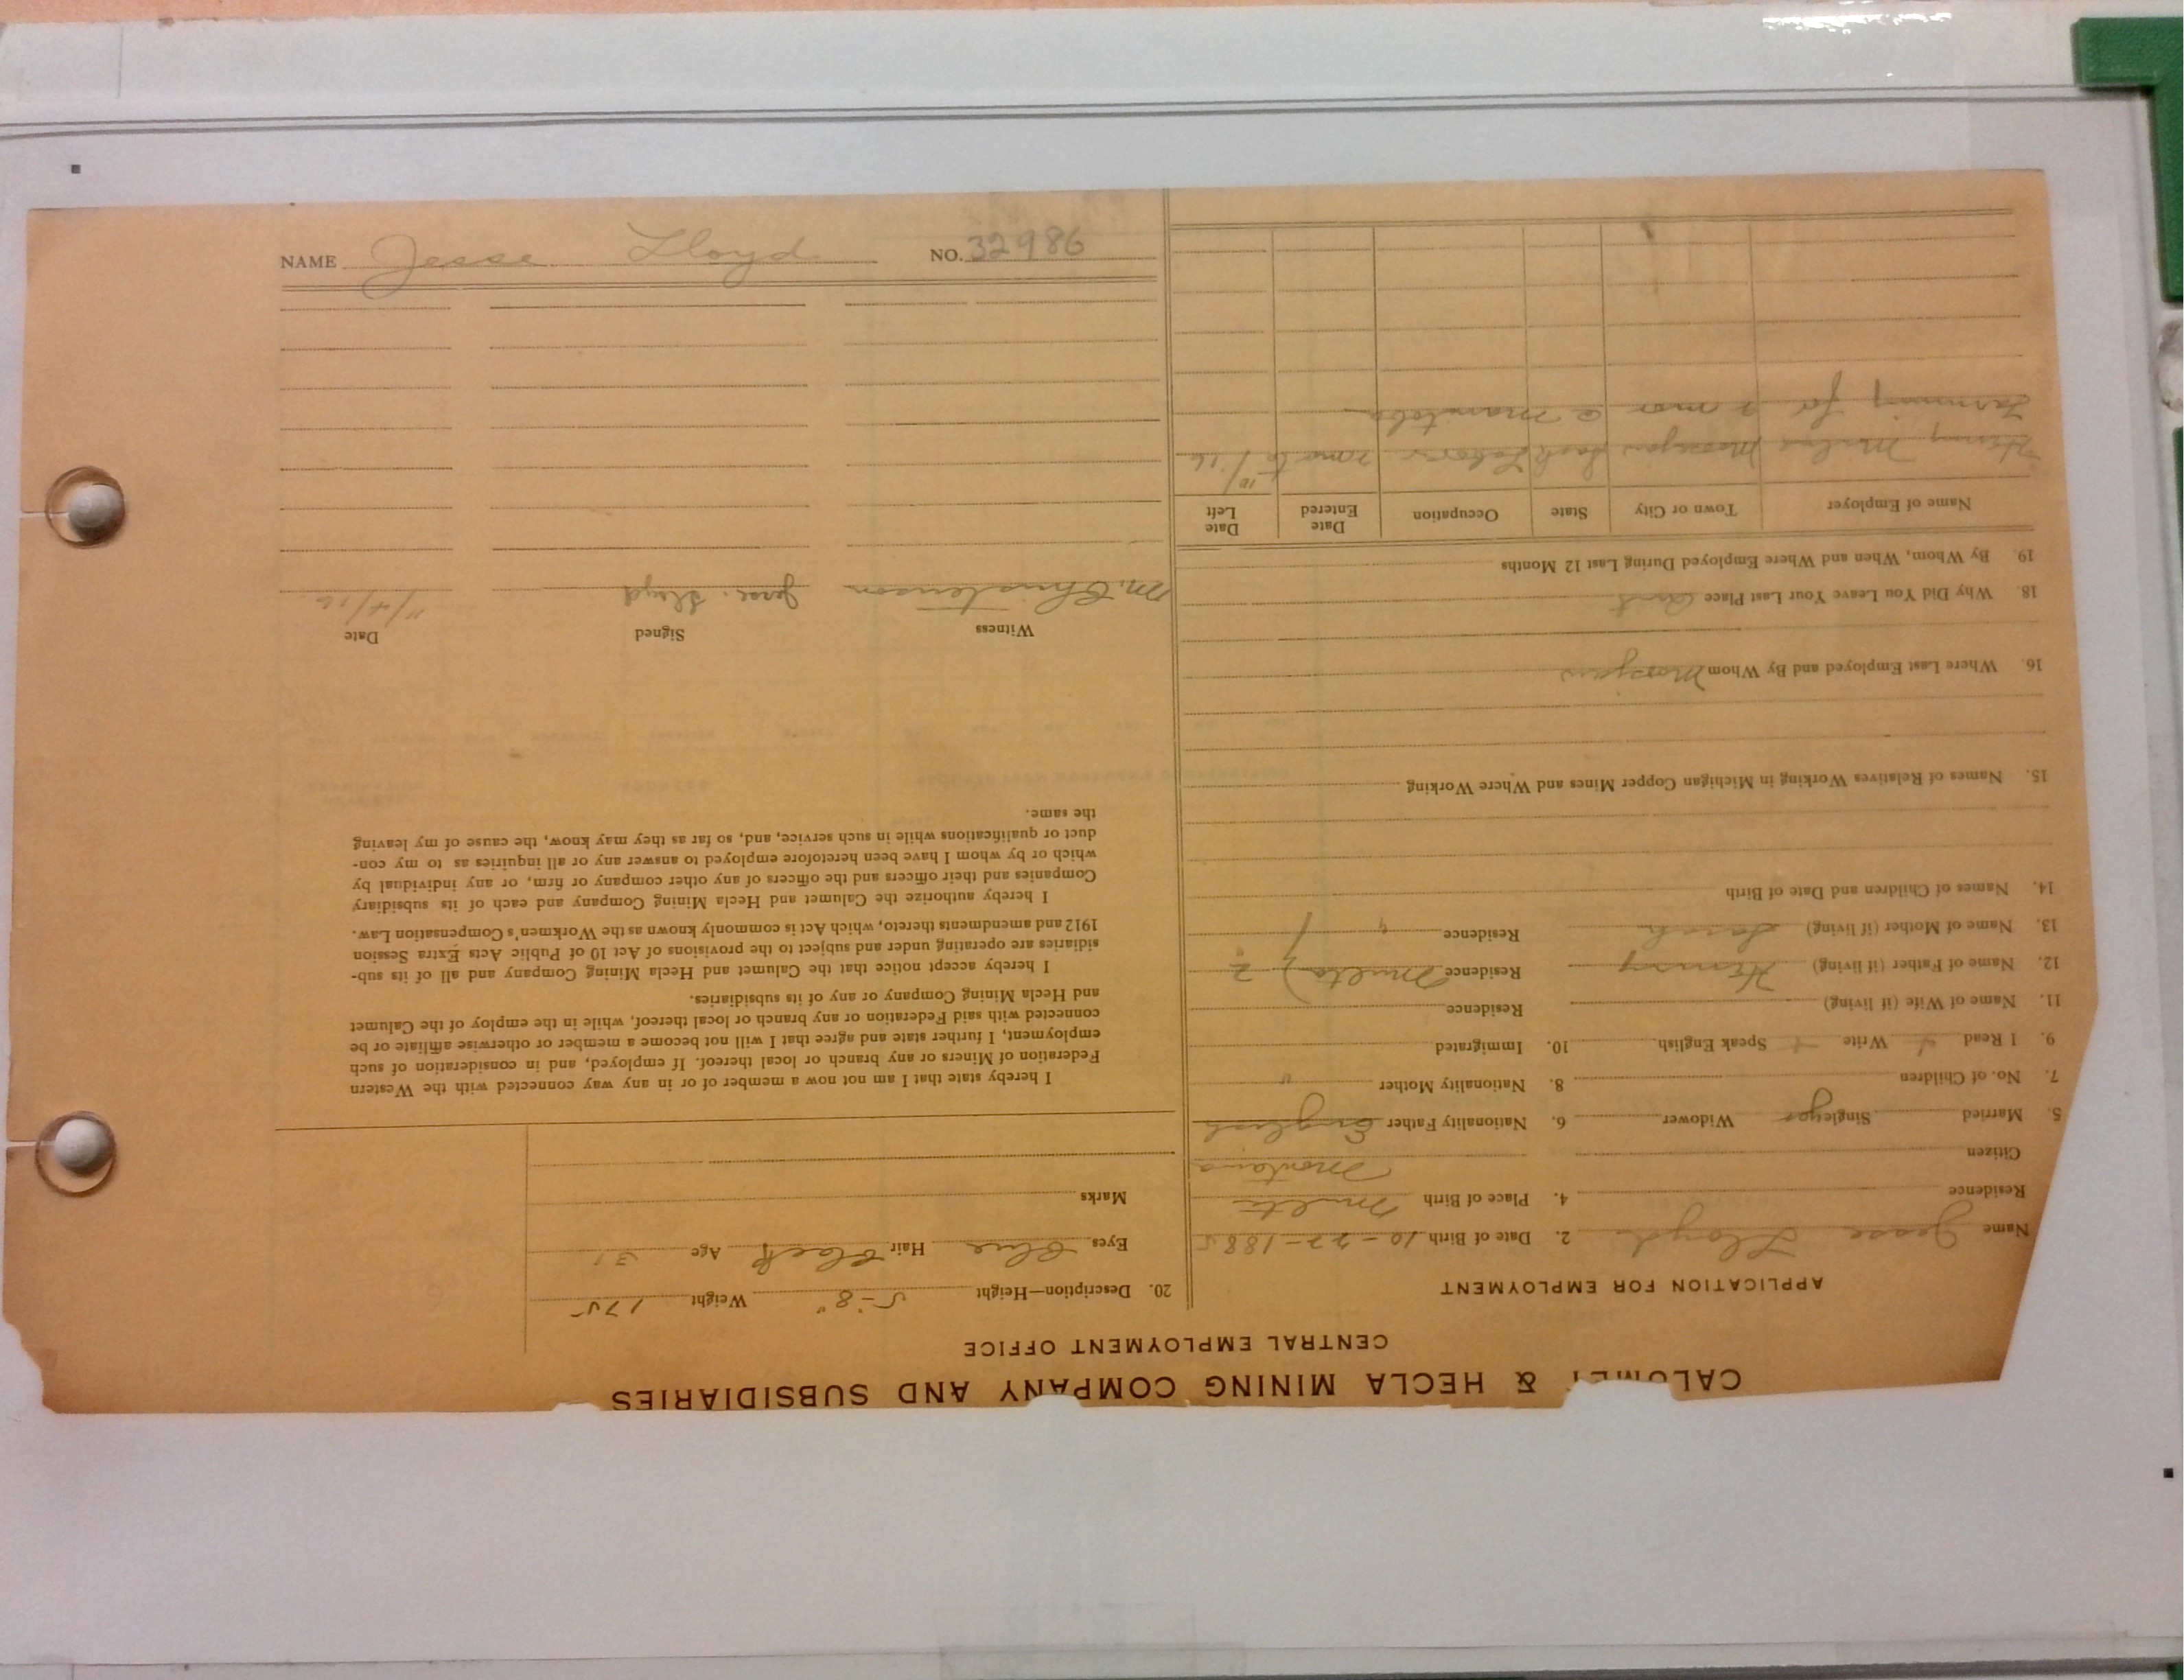 CALUMET & HECLA MINING COMPANY AND SUBSIDIARIES
CENTRAL EMPLOYMENT OFFICE
APPLICATION FOR EMPLOYMENT
Name Jesse Lloyd 2. Date of Birth 10-22-1885
Residence 4. Place of Birth
Citizen Montana
5. Married Single yes Widower 6. Nationality Father English
7. No. of Children 8. Nationality Mother "
9. I Read Write Speak English 10. Immigrated
11. Name of Wife (if living) Residence
12. Name of Father (if living) Henry Residence
13. Name of Mother (if living) Sarah Residence "
14. Names of Children and Date of Birth
15. Names of Relatives Working in Michigan Copper Mines and Where Working
16. Where Last Employed and By Whom
18. Why Did You Leave Your Last Place
19. By Whom, When and Where Employed During Last 12 Months
Name of Employer Town or City State Occupation Date Entered Date Left
Henry Sask Labor 2 mo to 10/16
Farming for 2 mos @ Manitoba
20. Description—Height 5-8" Weight 175
Eyes Blue Hair Black Age 31
Marks
I hereby state that I am not now a member of or in any way connected with the Western
Federation of Miners or any branch or local thereof. If employed, and in consideration of such
employment, I further state and agree that I will not become a member or otherwise affiliate or be
connected with said Federation or any branch or local thereof, while in the employ of the Calumet
and Hecla Mining Company or any of its subsidiaries.
I hereby accept notice that the Calumet and Hecla Mining Company and all of its sub-
sidiaries are operating under and subject to the provisions of Act 10 of Public Acts Extra Session
1912 and amendments thereto, which Act is commonly known as the Workmen's Compensation Law.
I hereby authorize the Calumet and Hecla Mining Company and each of its subsidiary
Companies and their officers and the officers of any other company or firm, or any individual by
which or by whom I have been heretofore employed to answer any or all inquiries as to my con-
duct or qualifications while in such service, and, so far as they may know, the cause of my leaving
the same.
Date Signed Witness
11/4/16 Jesse Lloyd M. Christenson
NAME Jesse Lloyd NO. 32986